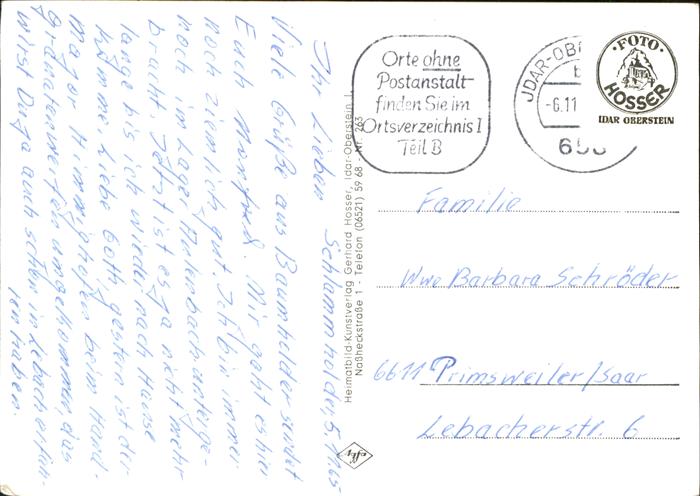 Schlammholder, 5.11.65
Ihr Lieben
Viele Grüße aus Baumholder sendet
Euch Manfred. Mir geht es hier
noch ziemlich gut. Ich bin immer
noch im Lager Aulenbach unterge-
bracht. Jetzt ist es ja nicht mehr
lange bis ich wieder nach Hause
komme. Liebe Goth gestern ist der
major Himmighofen beim Hand-
granatenwerfen umgekommen, das
wirst Du ja auch schon in Lebach erfah-
ren haben.
Heimatbild-Kunstverlag Gerhard Hosser, Idar-Oberstein 1
Naßheckstraße 1 - Telefon (06521) 59 68 - Nr. 263
effg
Orte ohne
Postanstalt
finden Sie im
Ortsverzeichnis I
Teil B
IDAR-OBE
b
-6.11
658
· FOTO ·
HOSSER
IDAR OBERSTEIN
Familie
Wwe Barbara Schröder
6611 Primsweiler/Saar
Lebacherstr. 6